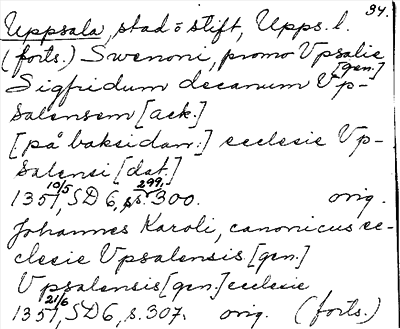 34.
Uppsala, stad o stift, Upps. l.
(forts.) Swenoni, promo Vpsalie
[gen.]
Sigfridum decanum Vp-
salensem [ack.]
[på baksidan:] ecclesie Vp-
salensi [dat.]
10/5 299,
1351, SD 6, s. 300. orig.
Johannes Karoli, canonicus ec-
clesie Vpsalensis [gen.]
Vpsalensis [gen.] ecclesie
21/6
1351, SD 6, s. 307. orig. (forts.)